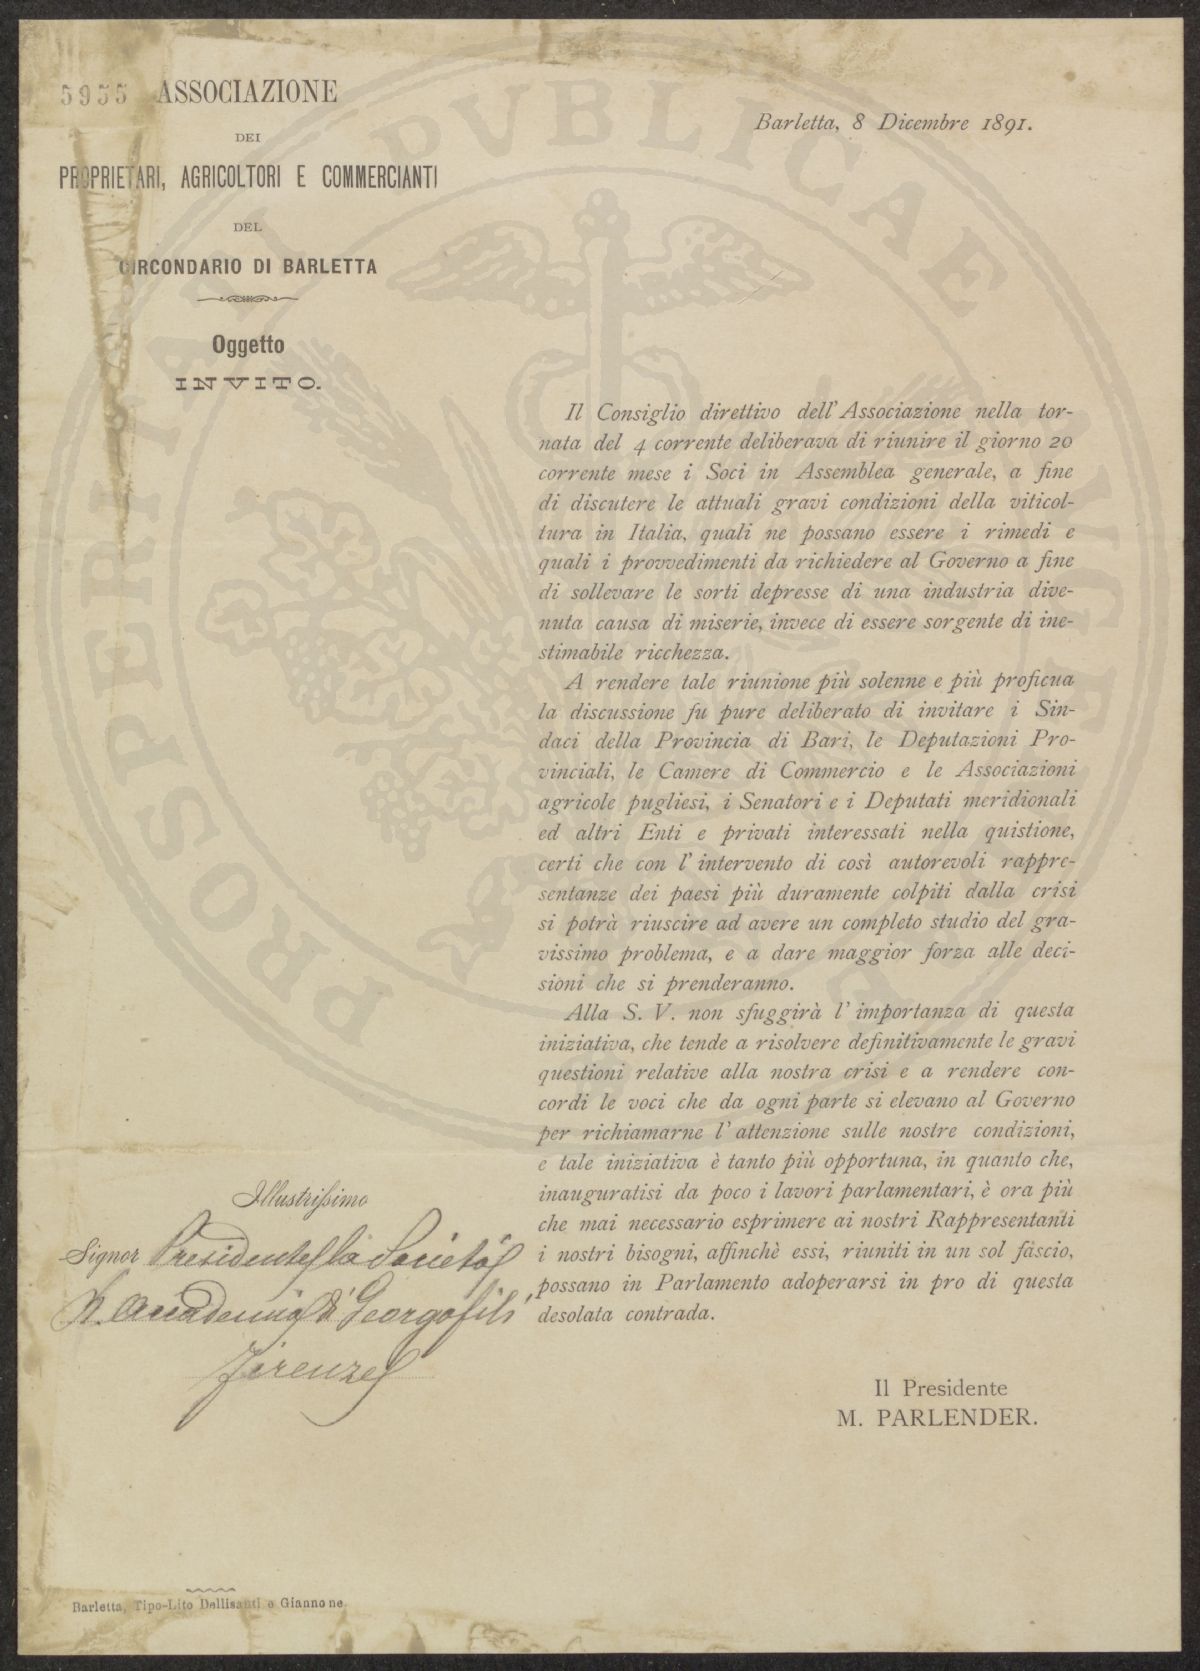 5955 ASSOCIAZIONE
DEI
PROPRIETARI, AGRICOLTORI E COMMERCIANTI
DEL
CIRCONDARIO DI BARLETTA
Oggetto
INVITO.
Barletta, 8 Dicembre 1891.
Il Consiglio direttivo dell'Associazione nella tor-
nata del 4 corrente deliberava di riunire il giorno 20
corrente mese i Soci in Assemblea generale, a fine
di discutere le attuali gravi condizioni della viticol-
tura in Italia, quali ne possano essere i rimedi e
quali i provvedimenti da richiedere al Governo a fine
di sollevare le sorti depresse di una industria dive-
nuta causa di miserie, invece di essere sorgente di ine-
stimabile ricchezza.
A rendere tale riunione più solenne e più proficua
la discussione fu pure deliberato di invitare i Sin-
daci della Provincia di Bari, le Deputazioni Pro-
vinciali, le Camere di Commercio e le Associazioni
agricole pugliesi, i Senatori e i Deputati meridionali
ed altri Enti e privati interessati nella quistione,
certi che con l'intervento di così autorevoli rappre-
sentanze dei paesi più duramente colpiti dalla crisi
si potrà riuscire ad avere un completo studio del gra-
vissimo problema, e a dare maggior forza alle deci-
sioni che si prenderanno.
Alla S. V. non sfuggirà l'importanza di questa
iniziativa, che tende a risolvere definitivamente le gravi
questioni relative alla nostra crisi e a rendere con-
cordi le voci che da ogni parte si elevano al Governo
per richiamarne l'attenzione sulle nostre condizioni,
e tale iniziativa è tanto più opportuna, in quanto che,
inauguratisi da poco i lavori parlamentari, è ora più
che mai necessario esprimere ai nostri Rappresentanti
i nostri bisogni, affinchè essi, riuniti in un sol fascio,
possano in Parlamento adoperarsi in pro di questa
desolata contrada.
Il Presidente
M. PARLENDER.
Illustrissimo
Signor Presidente la Società
R. Accademia di Georgofili
Firenze
Barletta, Tipo-Lito Dellisanti e Giannone.
PROSPERITATI PVBLICAE AVGENDAE